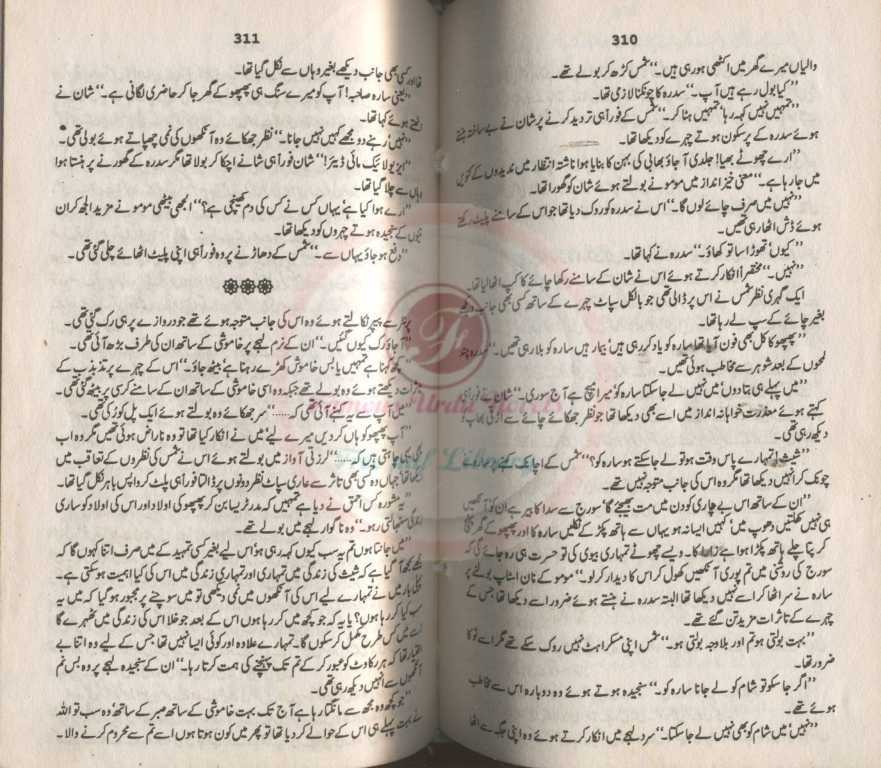 310
والیاں میرے گھر میں اکٹھی ہو رہی ہیں۔‘‘ شمس کڑھ کر بولے تھے۔
’’کیا بول رہے ہیں آپ۔‘‘ سدرہ کا چونکنا لازمی تھا۔
’’تمہیں نہیں کہہ رہا‘ تمہیں بتا کر۔‘‘ شمس کے فوراً ہی تردید کرنے پر شان نے بے ساختہ ہنستے
ہوئے سدرہ کے پرسکون ہوتے چہرے کو دیکھا تھا۔
’’ارے چھوٹے بھیا! جلدی آ جاؤ بھابی کی بہن کا بنایا ہوا ناشتہ انتظار میں ندیدوں کے کنویں
میں جا رہا ہے۔‘‘ معنی خیز انداز میں مومو نے بولتے ہوئے شان کو گھورا تھا۔
’’نہیں میں صرف چائے لوں گا۔‘‘ اس نے سدرہ کو روک دیا تھا جو اس کے سامنے پلیٹ رکھتے
ہوئے ڈش اٹھا رہی تھیں۔
’’کیوں‘ تھوڑا سا تو کھاؤ۔‘‘ سدرہ نے کہا تھا۔
’’نہیں۔‘‘ مختصراً انکار کرتے ہوئے اس نے شان کے سامنے رکھا چائے کا کپ اٹھا لیا تھا۔
ایک گہری نظر شمس نے اس پر ڈالی تھی جو بالکل سپاٹ چہرے کے ساتھ کسی بھی جانب دیکھے
بغیر چائے کے سپ لے رہا تھا۔
’’پھپھو کا کل بھی فون آیا تھا سارہ کو یاد کر رہی ہیں‘ بیمار ہیں سارہ کو بلا رہی تھیں۔‘‘ سدرہ چند
لمحوں کے بعد شوہر سے مخاطب ہوئی تھیں۔
’’میں پہلے ہی بتا دوں‘ میں نہیں لے جا سکتا سارہ کو‘ میرا میچ ہے آج سوری۔‘‘ شان نے فوراً ہی
کہتے ہوئے معذرت خواہانہ انداز میں اسے بھی دیکھا تھا جو نظر جھکائے چائے سے اڑتی بھاپ کو
دیکھ رہی تھی۔
’’شیث! تمہارے پاس وقت ہو تو لے جا سکتے ہو سارہ کو؟‘‘ شمس کے اچانک کہنے پر سارہ نے
چونک کر انہیں دیکھا تھا مگر وہ اس کی جانب متوجہ نہیں تھے۔
’’ان کے ساتھ اس بے چاری کو دن میں مت بھیجئے گا‘ سورج سے سدا کا بیر ہے ان کو‘ آنکھیں
ہی نہیں کھلتیں دھوپ میں‘ کہیں ایسا نہ ہو یہاں سے ہاتھ پکڑ کے نکلیں سارہ کا اور پھپھو کے گھر پہنچ
کر پتا چلے ہاتھ پکڑا ہوا ہے زارا کا۔ ویسے چھوٹے تمہاری بیوی کی تو حسرت ہی رہ جائے گی کہ
سورج کی روشنی میں تم پوری آنکھیں کھول کر اس کا دیدار کر لو۔‘‘ مومو کے نان اسٹاپ بولنے پر
سارہ نے سر اٹھا کر اسے نہیں دیکھا تھا البتہ سدرہ نے ہنستے ہوئے ضرور اسے دیکھا تھا جس کے
چہرے کے تاثرات مزید تن گئے تھے۔
’’بہت بولتی ہو تم اور بلاوجہ بولتی ہو۔‘‘ شمس اپنی مسکراہٹ نہیں روک سکے تھے مگر اسے ٹوکا
ضرور تھا۔
’’اگر جا سکو تو شام کو لے جانا سارہ کو۔‘‘ سنجیدہ ہوتے ہوئے وہ دوبارہ اس سے مخاطب
ہوئے تھے۔
’’نہیں‘ میں شام کو بھی نہیں لے جا سکتا۔‘‘ سرد لہجے میں انکار کرتے ہوئے وہ اپنی جگہ سے اٹھا
311
تھا اور کسی بھی جانب دیکھے بغیر وہاں سے نکل گیا تھا۔
’’یعنی سارہ صاحبہ! آپ کو میرے سنگ ہی پھپھو کے گھر جا کر حاضری لگانی ہے۔‘‘ شان نے
اٹھتے ہوئے کہا تھا۔
’’نہیں رہنے دو مجھے کہیں نہیں جانا۔‘‘ نظر جھکائے وہ آنکھوں کی نمی چھپاتے ہوئے بولی تھی۔
’’ایز یو لائیک مائی ڈیئر!‘‘ شان فوراً ہی شانے اچکا کر بولا تھا مگر سدرہ کے گھورنے پر ہنستا ہوا
وہاں سے چلا گیا تھا۔
’’ارے ہوا کیا ہے‘ یہاں کس نے کس کی دم کھینچی ہے؟‘‘ الجھی بیٹھی مومو نے مزید الجھ کر ان
تینوں کے سنجیدہ ہوتے چہروں کو دیکھا تھا۔
’’دفع ہو جاؤ یہاں سے۔‘‘ شمس کے دھاڑنے پر وہ فوراً ہی اپنی پلیٹ اٹھائے چلی گئی تھی۔
پرنٹر سے پیپر نکالتے ہوئے وہ اس کی جانب متوجہ ہوئے تھے جو دروازے پر ہی رک گئی تھی۔
’’آ جاؤ رک کیوں گئیں۔‘‘ ان کے نرم لہجے پر خاموشی کے ساتھ ان کی طرف بڑھ آئی تھی۔
’’کچھ کہنا ہے تمہیں یا بس خاموش کھڑے رہنا ہے‘ بیٹھ جاؤ۔‘‘ اس کے چہرے پر تذبذب کے
تاثرات دیکھتے ہوئے وہ بولے تھے جبکہ وہ اسی خاموشی کے ساتھ ان کے سامنے کرسی پر بیٹھ گئی تھی۔
’’میں آپ سے یہ کہنے آئی تھی کہ......‘‘ سر جھکائے وہ بولتے ہوئے ایک پل کو رکی تھی۔
’’آپ پھپھو کو ہاں کر دیں میرے لیے‘ میں نے انکار کیا تھا تو وہ ناراض ہوئی تھیں مگر وہ اب
بھی یہی چاہتی ہیں کہ......‘‘ لرزتی آواز میں بولتے ہوئے اس نے شمس کی نظروں کے تعاقب میں
دیکھا تھا‘ جہاں وہ کسی بھی تاثر سے عاری سپاٹ نظر دونوں پر ڈالتا فوراً ہی پلٹ کر واپس باہر نکل گیا تھا۔
’’یہ مشورہ کس احمق نے دیا ہے تمہیں کہ مدر ٹریسا بن کر پھپھو کی اولاد اور اس کی اولاد کو ساری
زندگی سنبھالتی رہو۔‘‘ وہ ناگوار لہجے میں بولے تھے۔
’’میں جانتا ہوں تم یہ سب کیوں کہہ رہی ہو‘ اس لیے بغیر کسی تمہید کے میں صرف اتنا کہوں گا کہ
مجھے سمجھ آ گیا ہے کہ شیث کی زندگی میں تمہاری اور تمہاری زندگی میں اس کی کیا اہمیت ہو سکتی ہے۔
پہلی بار میں نے تمہارے لیے اس کی آنکھوں میں نمی دیکھی تو میں سوچنے پر مجبور ہو گیا کہ میں یہ
سب کیا کر رہا ہوں؟ یا یہ کہ جو کچھ میں کر رہا ہوں اس کے بعد جو خلا اس کی زندگی میں ٹھہرے گا
اسے میں کس طرح مکمل کر سکوں گا۔ تمہارے علاوہ اور کوئی ایسا نہیں تھا جس کے لیے وہ اتنا بے
اختیار تھا کہ ہر رکاوٹ کو عبور کر کے تم تک پہنچنے کی ہمت کرتا رہا۔‘‘ ان کے سنجیدہ لہجے پر وہ بس نم
آنکھوں سے انہیں دیکھ رہی تھی۔
’’جو کچھ وہ مجھ سے مانگتا رہا ہے آج تک بہت خاموشی کے ساتھ صبر کے ساتھ‘ وہ سب تو اللہ
نے بہت پہلے ہی اس کے حوالے کر دیا تھا تو پھر میں کون ہوتا ہوں اسے تم سے محروم کرنے والا۔